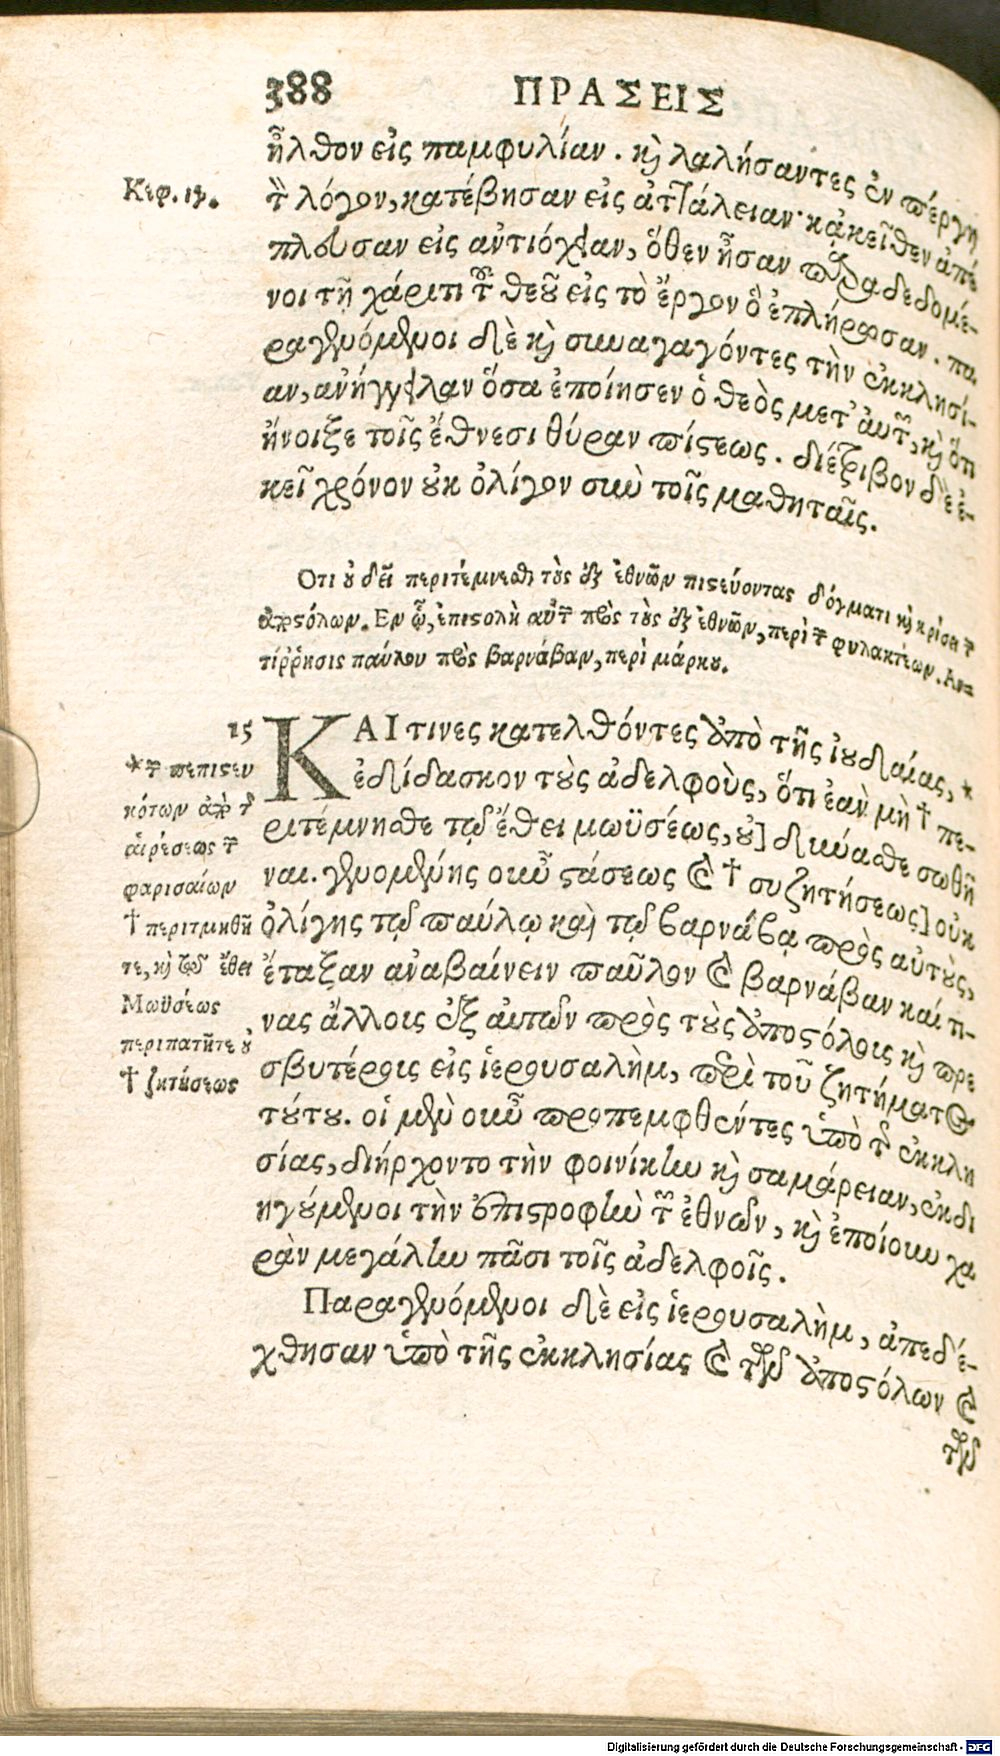 388 ΠΡΑΣΕΙΣ
ἦλθον εἰς παμφυλίαν. κὶ λαλήσαντες ἐν πέργῃ
Κεφ. ιγ.
τ λόγον, κατέβησαν εἰς ἀτταλειαν· κἀκεῖθεν ἀπέ
πλευσαν εἰς αὐτιόχειαν, ὅθεν ἦσαν παραδεδομέ-
νοι τῇ χάριτι τοῦ θεοῦ εἰς τὸ ἔργον ὃ ἐπλήρωσαν. πα
ραγενόμενοι δὲ κὶ συναγαγόντες τὴν ἐκκλησί-
αν, ἀνήγγειλαν ὅσα ἐποίησεν ὁ θεὸς μετ' αὐτῶν, κὶ ὅτι
ἤνοιξε τοῖς ἔθνεσι θύραν πίστεως. διέτριβον δὲ ἐ-
κεῖ χρόνον οὐκ ὀλίγον σὺν τοῖς μαθηταῖς.
Οτι οὐ δεῖ περιτέμνεσθαι τοὺς ἐξ ἐθνῶν πιστεύοντας δόγματι κὶ κρίσει τ
ἀποστόλων. Εν ᾧ, ἐπιστολὴ αὐτῶν πρὸς τοὺς ἐξ ἐθνῶν, περὶ τ φυλακτέων. Αν-
τίῤῥησις παύλου πρὸς βαρνάβαν, περὶ μάρκου.
15 ΚΑΙ τινες κατελθόντες ἀπὸ τῆς ἰουδαίας, *
ἐδίδασκον τοὺς ἀδελφοὺς, ὅτι ἐὰν μὴ † πε-
ριτέμνησθε τῷ ἔθει μωϋσέως, οὐ] δύνασθε σωθῆ
ναι. γενομένης οὖν στάσεως καὶ † συζητήσεως] οὐκ
ὀλίγης τῷ παύλῳ καὶ τῷ βαρνάβᾳ πρὸς αὐτοὺς,
ἔταξαν ἀναβαίνειν παῦλον καὶ βαρνάβαν καί τι-
νας ἄλλους ἐξ αὐτῶν πρὸς τοὺς ἀποστόλους κὶ πρε
σβυτέρους εἰς ἱερουσαλὴμ, περὶ τοῦ ζητήματος
τούτου. οἱ μὲν οὖν προπεμφθέντες ὑπὸ τῆς ἐκκλη
σίας, διήρχοντο τὴν φοινίκην κὶ σαμάρειαν, ἐκδι
ηγούμενοι τὴν ἐπιστροφὴν τῶν ἐθνῶν, κὶ ἐποίουν χα
ρὰν μεγάλην πᾶσι τοῖς ἀδελφοῖς.
Παραγενόμενοι δὲ εἰς ἱερουσαλὴμ, ἀπεδέ-
χθησαν ὑπὸ τῆς ἐκκλησίας καὶ τῶν ἀποστόλων καὶ
τῶν
* τ πεπιστευ
κότων ἀπὸ τῆς
αἱρέσεως τ
φαρισαίων
† περιτμηθῆ
τε, κὶ τῷ ἔθει
Μωϋσέως
περιπατῆτε, οὐ
† ζητήσεως
Digitalisierung gefördert durch die Deutsche Forschungsgemeinschaft - DFG